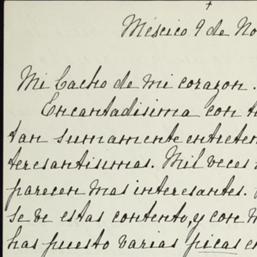 México 9 de No
Mi Cacho de mi corazon.
Encantadisima con t
tan sumamente entreten
teresantisimas. Mil veces
parecen mas interesantes.
se ve estas contento, y con m
has puesto varias picas e